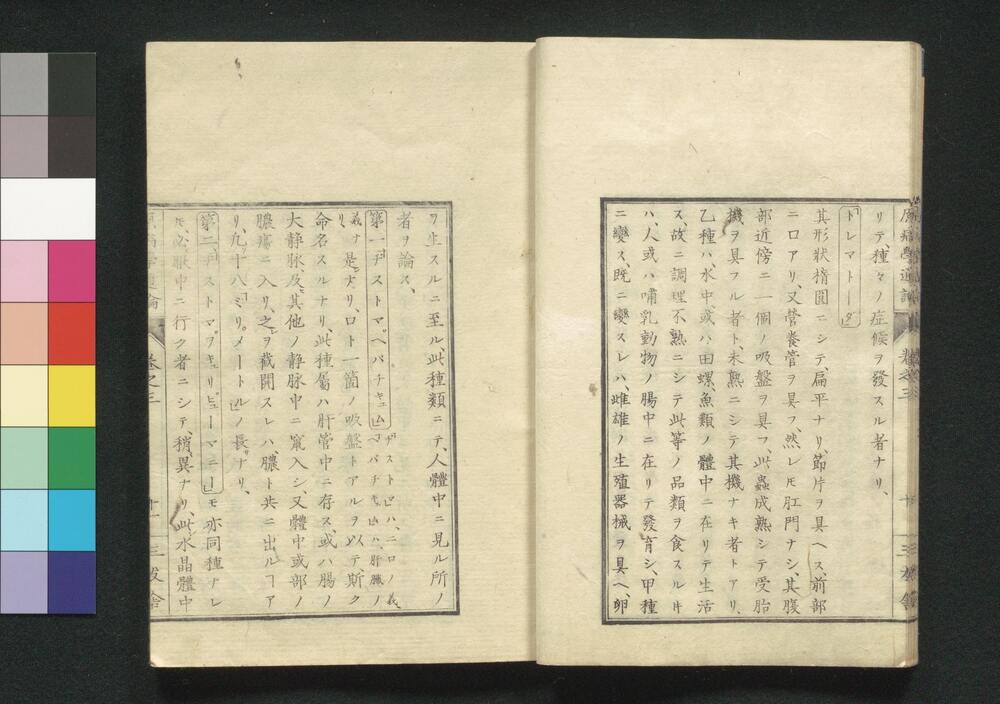 リテ、種々ノ症候ヲ發スル者ナリ、
「トレマトーダ」
其形狀橢圓ニシテ、扁平ナリ、節片ヲ具ヘス、前部
ニ口アリ、又營養管ヲ具フ、然レ𪜈肛門ナシ、其腹
部近傍ニ一個ノ吸盤ヲ具フ、此蟲成熟シテ受胎
機ヲ具フル者ト、未熟ニシテ其機ナキ者トアリ、
乙種ハ、水中、或ハ田螺、魚類ノ體中ニ在リテ生活
ス、故ニ調理不熟ニシテ此等ノ品類ヲ食スル𪜈
ハ、人或ハ哺乳動物ノ腸中ニ在リテ發育シ、甲種
ニ變ス、既ニ變スレハ、雌雄ノ生殖器械ヲ具ヘ、卵
ヲ生スルニ至ル、此種類ニテ、人體中ニ見ル所ノ
者ヲ論ス、
第一「ヂストマ、ヘパチキュム」ヂストマハ、二口ノ義、ヘパチキュムハ、肝臟ノ
義ナリ、是ナリ、口ト一箇ノ吸盤トアルヲ以テ、斯ク
命名スルナリ、此種屬ハ肝管中ニ存ス、或ハ腸ノ
大靜脉、及其他ノ靜脉中ニ竄入シ、又體中或部ノ
膿瘍ニ入リ、之ヲ截開スレハ、膿ト共ニ出ルヿア
リ、九、十八「ミリメートル」ノ長ナリ、
第二「ヂストマ」モ亦同種ナレ
𪜈、必脈中ニ行ク者ニシテ、稍異ナリ、此水晶體中
卷之三
十一
三友舍